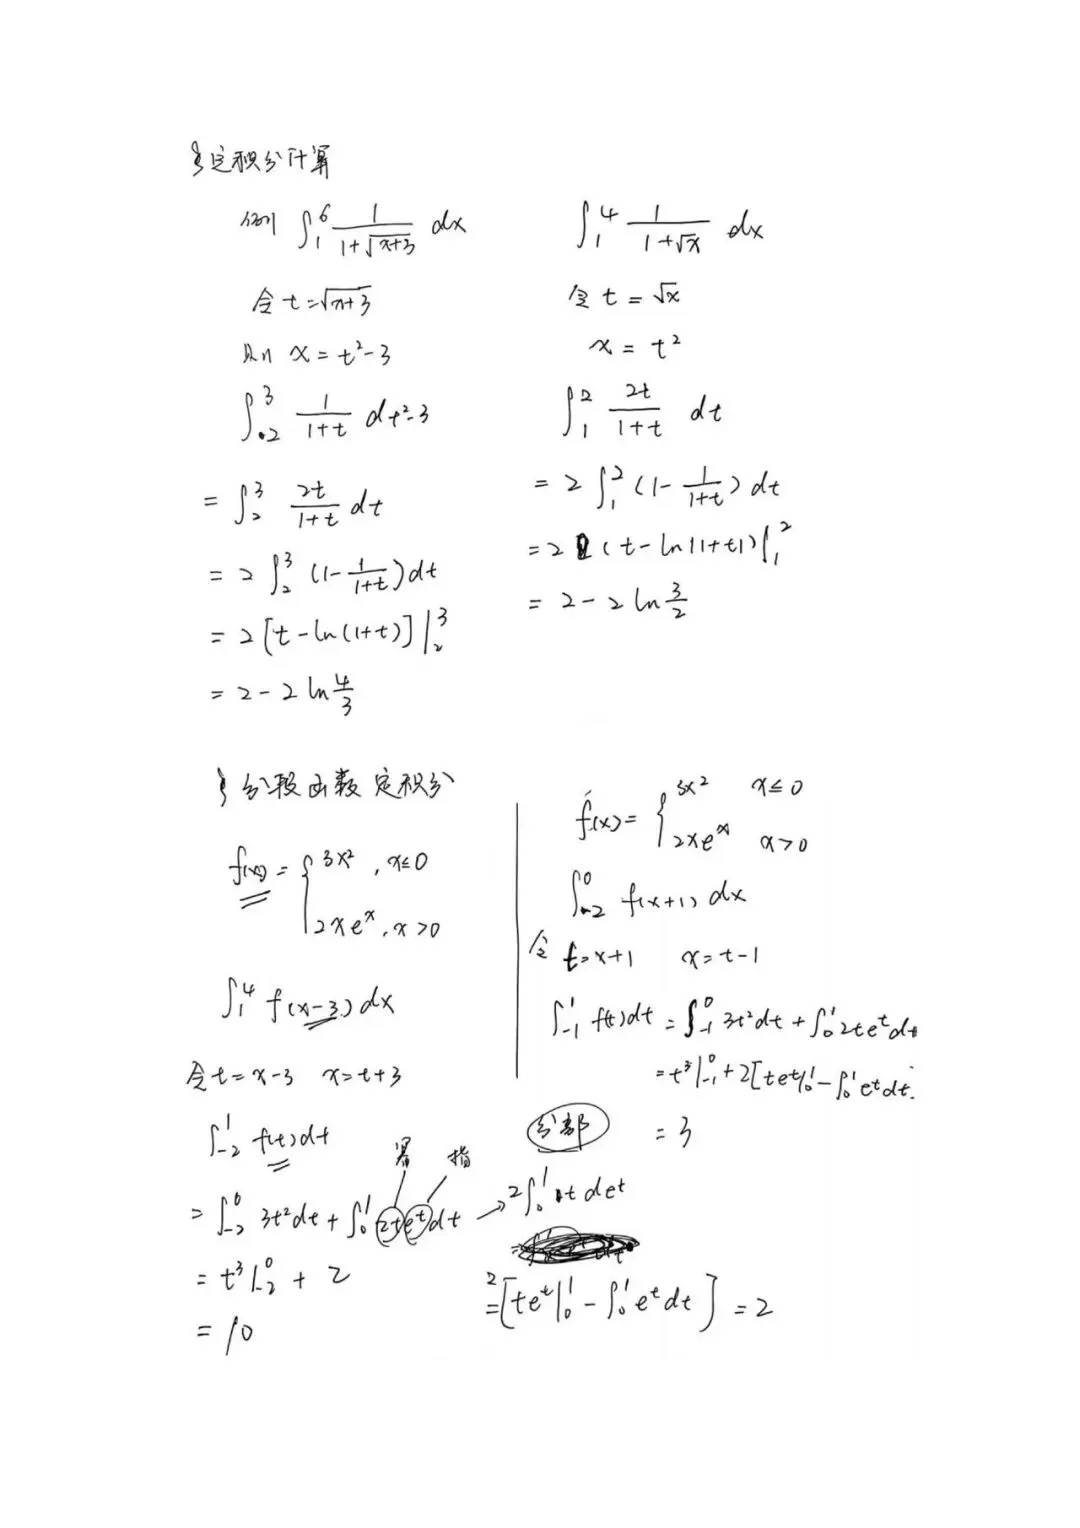 定积分计算
例 ∫₁⁶ 1/(1+√(x+3)) dx
令 t=√(x+3)
则 x=t²-3
∫₂³ 1/(1+t) dt²-3
= ∫₂³ 2t/(1+t) dt
= 2 ∫₂³ (1-1/(1+t)) dt
= 2[t-ln(1+t)]|₂³
= 2-2 ln 4/3
∫₁⁴ 1/(1+√x) dx
令 t=√x
x=t²
∫₁² 2t/(1+t) dt
= 2∫₁² (1-1/(1+t)) dt
= 2 (t-ln|1+t|)|₁²
= 2-2 ln 3/2
分段函数定积分
f(x) = { 3x², x≤0
2xeˣ, x>0
∫₁⁴ f(x-3) dx
令 t=x-3 x=t+3
∫₋₂¹ f(t)dt
幂 指
= ∫₋₂⁰ 3t²dt + ∫₀¹ 2teᵗdt → 2∫₀¹ t deᵗ
= t³|₋₂⁰ + 2
= 10
f(x) = { 3x² x≤0
2xeˣ x>0
∫₋₂⁰ f(x+1) dx
令 t=x+1 x=t-1
∫₋₁¹ f(t)dt = ∫₋₁⁰ 3t²dt + ∫₀¹ 2teᵗdt
= t³|₋₁⁰ + 2[teᵗ|₀¹ - ∫₀¹ eᵗdt.
= 3
分部
= 2[teᵗ|₀¹ - ∫₀¹ eᵗdt] = 2